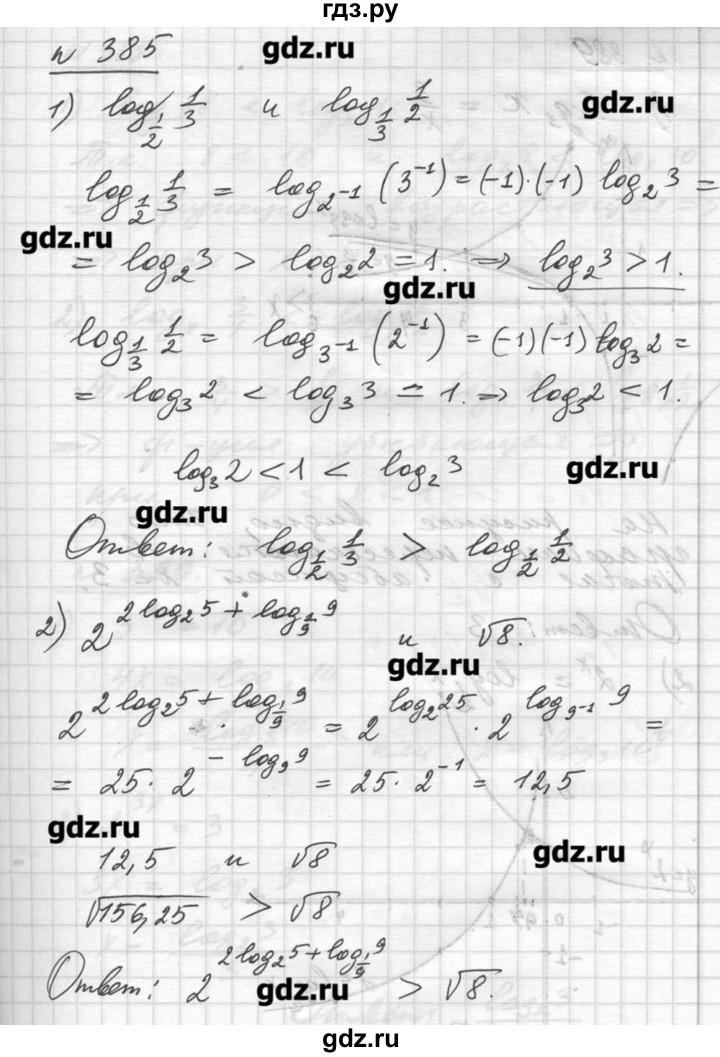 гдз.ру
n 385 gdz.ru
1) log_{1/2} 1/3 и log_{1/3} 1/2 gdz.ru
log_{1/2} 1/3 = log_{2^{-1}} (3^{-1}) = (-1)·(-1) log_2 3 =
gdz.ru
= log_2 3 > log_2 2 = 1. ⇒ log_2 3 > 1.
gdz.ru
log_{1/3} 1/2 = log_{3^{-1}} (2^{-1}) = (-1)(-1) log_3 2 =
= log_3 2 < log_3 3 = 1. ⇒ log_3 2 < 1.
log_3 2 < 1 < log_2 3 gdz.ru
gdz.ru
Ответ: log_{1/2} 1/3 > log_{1/2} 1/2
2) 2^{2 log_2 5 + log_{1/9} 9} и √8.
gdz.ru
2^{2 log_2 5 + log_{1/9} 9} = 2^{log_2 25} · 2^{log_{9^{-1}} 9} =
= 25 · 2^{- log_9 9} = 25 · 2^{-1} = 12,5
gdz.ru
12,5 и √8 gdz.ru
√156,25 > √8
Ответ: 2^{2 log_2 5 + log_{1/9} 9} > √8.
gdz.ru
gdz.ru